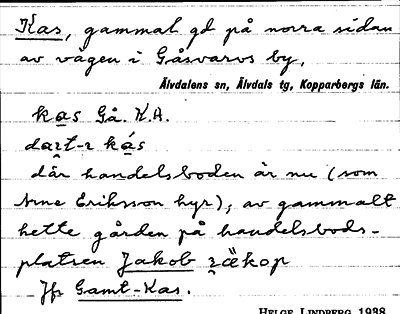 Kas, gammal gd på norra sidan
av vägen i Gåsvarvs by,
Älvdalens sn, Älvdals tg, Kopparbergs län.
kas Gå. K.A.
dart-r kás
där handelsboden är nu (som
Arne Eriksson hyr), av gammalt
hette gården på handelsbods-
platsen Jakob räkop
Jfr Gamt-Kas.
HELGE LINDBERG 1938